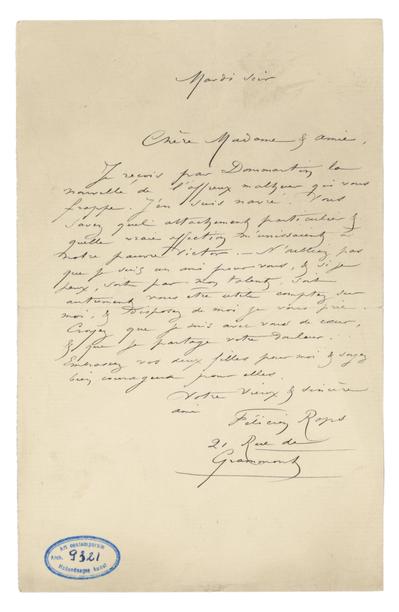 Mardi soir
Chère Madame & amie,
Je reçois par Dommartin la
nouvelle de l'affreux malheur qui vous
frappe. J'en suis navré. Vous
savez quel attachement particulier &
quelle vraie affection m'unissaient à
notre pauvre Victor. – N'oubliez pas
que je suis un ami pour vous, & si je
peux, soit par mon talent, soit
autrement vous être utile comptez sur
moi, & disposez de moi je vous prie.
Croyez que je suis avec vous de cœur,
& que je partage votre douleur.
Embrassez vos deux filles pour moi & soyez
bien courageuse pour elles
Votre vieux & sincère
ami
Félicien Rops
21 Rue de
Grammont
Art contemporain
Arch. 9321
Hedendaagse kunst